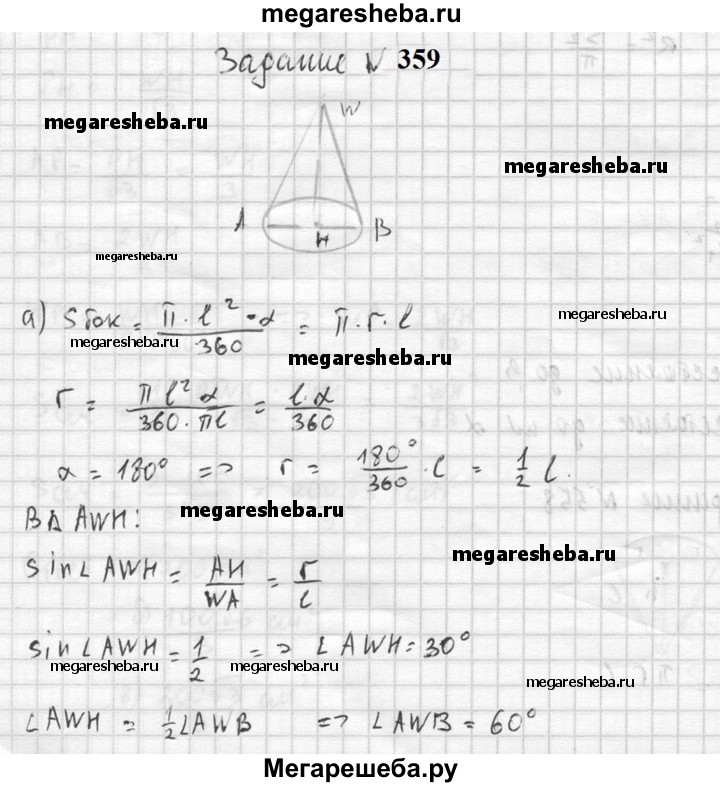 megaresheba.ru
Задание № 359
W
megaresheba.ru
megaresheba.ru
A
B
H
megaresheba.ru
а) Sбок = π · l² · α / 360 = π · r · l
megaresheba.ru
megaresheba.ru
megaresheba.ru
r = π l² α / 360 · πl = l · α / 360
α = 180° => r = 180° / 360 · l = 1/2 l.
В Δ AWH:
megaresheba.ru
megaresheba.ru
sin∠AWH = AH / WA = r / l
sin∠AWH = 1/2 => ∠AWH = 30°
megaresheba.ru
megaresheba.ru
megaresheba.ru
∠AWH = 1/2 ∠AWB => ∠AWB = 60°
Мегарешеба.ру